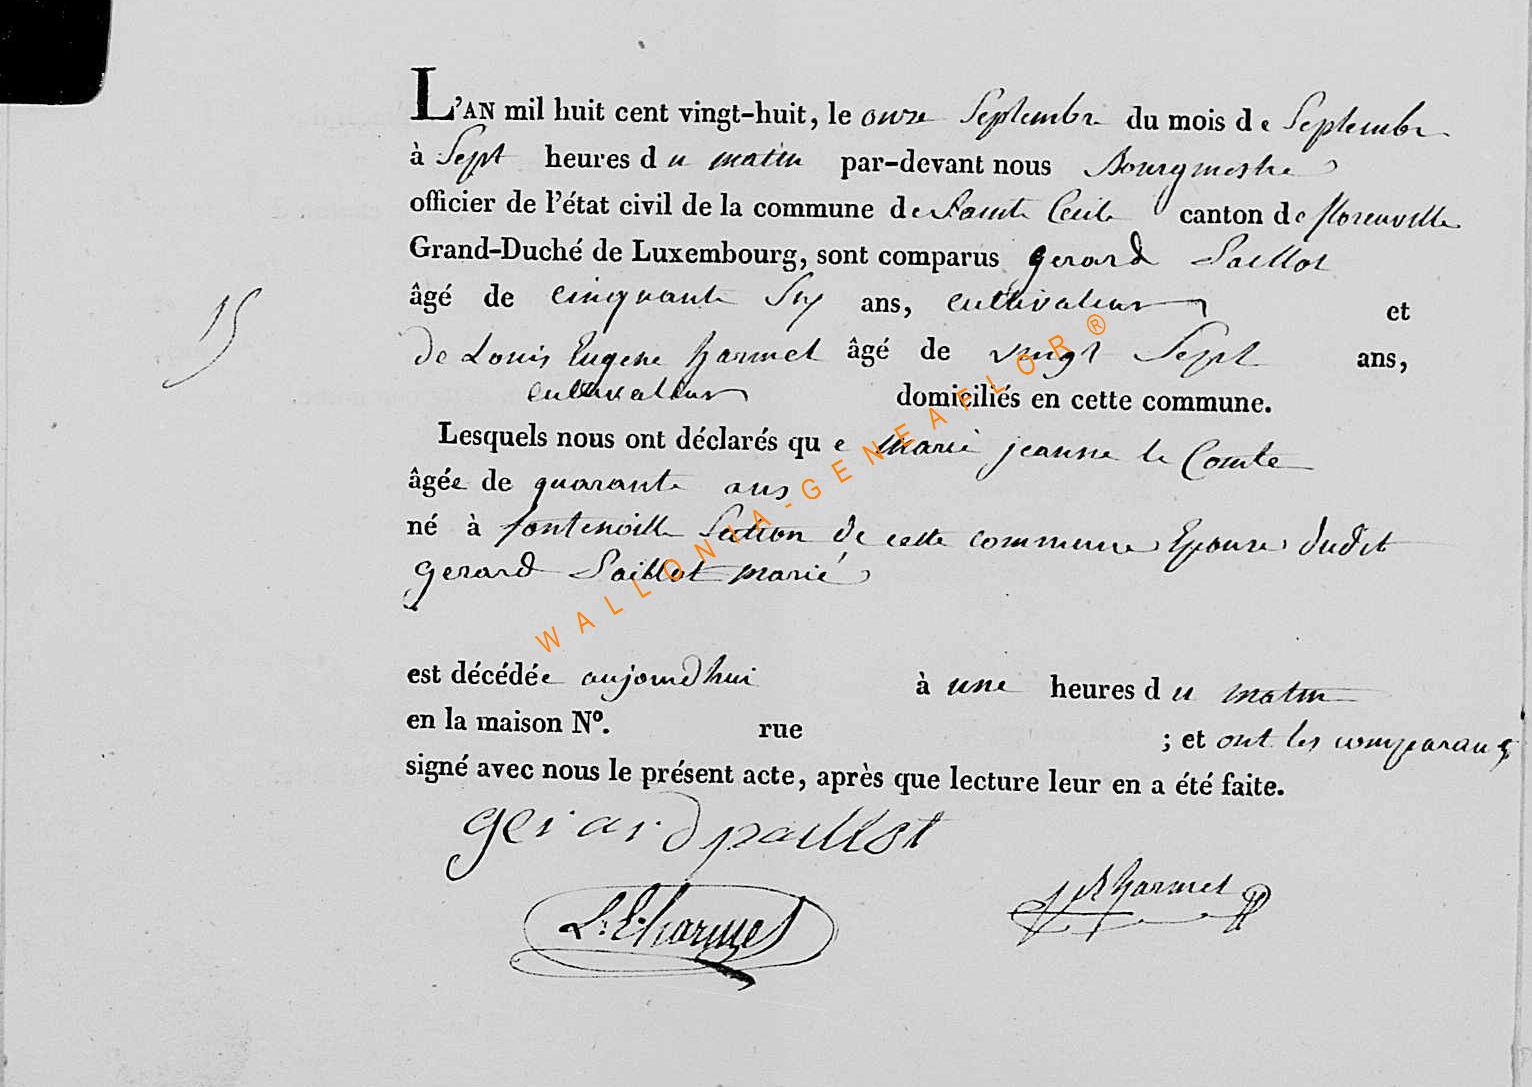 L'AN mil huit cent vingt-huit, le onze Septembre du mois de Septembre
à Sept heures du matin par-devant nous Bourgmestre
officier de l'état civil de la commune de Sainte Cecile canton de florenville
Grand-Duché de Luxembourg, sont comparus gerard Paillot
âgé de cinquante Six ans, cultivateur et
15
de Louis Eugene harmel âgé de vingt Sept ans,
cultivateur domiciliés en cette commune.
Lesquels nous ont déclarés que marie jeanne le Comte
âgée de quarante ans
né à fontenoille Section de cette commune Epouse dudit
gerard Paillot marié
est décédée aujourdhui à une heures du matin
en la maison Nº. rue ; et ont les comparans
signé avec nous le présent acte, après que lecture leur en a été faite.
gerard paillot
L: E: harmel
harmel
WALLONIA-GENEAFLOR®